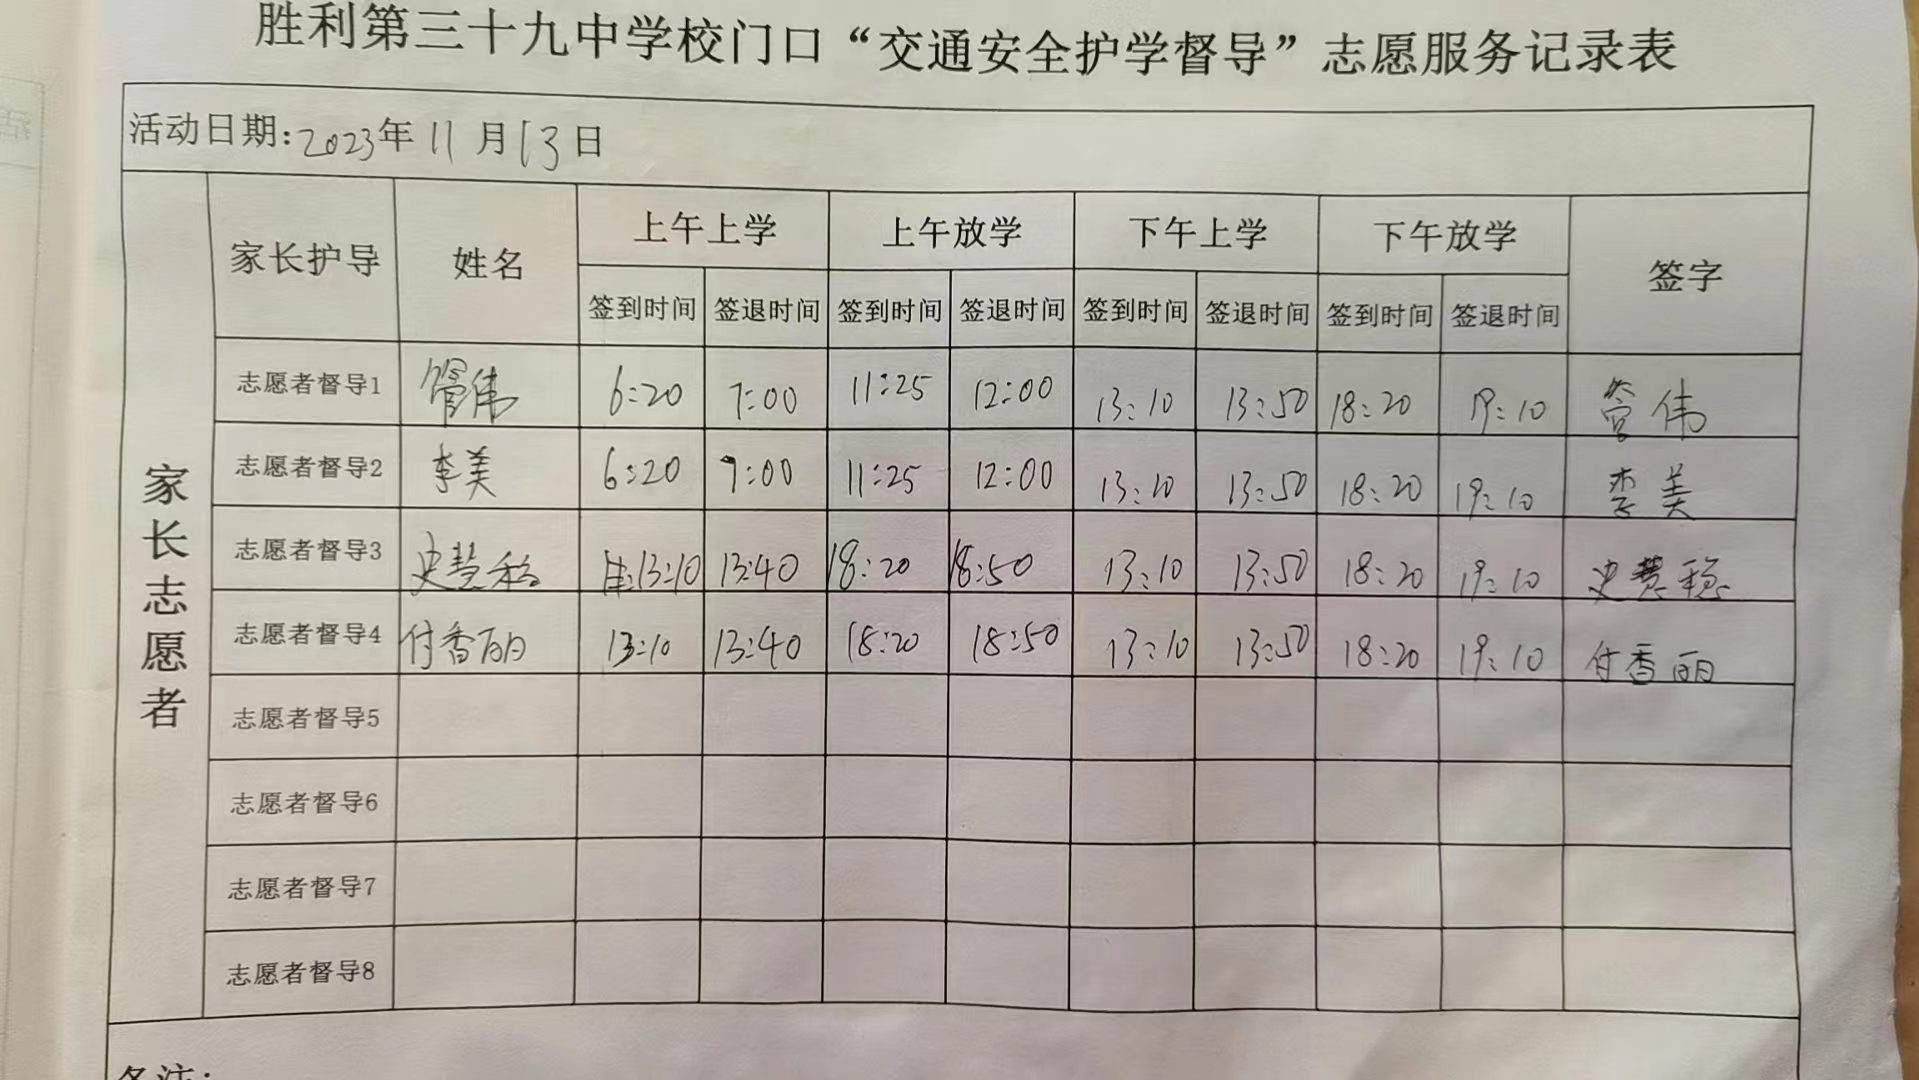 胜利第三十九中学校门口“交通安全护学督导”志愿服务记录表
活动日期:2023年11月13日
家长志愿者
家长护导 姓名 上午上学 上午放学 下午上学 下午放学 签字
签到时间 签退时间 签到时间 签退时间 签到时间 签退时间 签到时间 签退时间
志愿者督导1 管伟 6:20 7:00 11:25 12:00 13:10 13:50 18:20 19:10 管伟
志愿者督导2 李美 6:20 7:00 11:25 12:00 13:10 13:50 18:20 19:10 李美
志愿者督导3 史慧稳 13:10 13:40 18:20 18:50 13:10 13:50 18:20 19:10 史慧稳
志愿者督导4 付香丽 13:10 13:40 18:20 18:50 13:10 13:50 18:20 19:10 付香丽
志愿者督导5
志愿者督导6
志愿者督导7
志愿者督导8
备注: